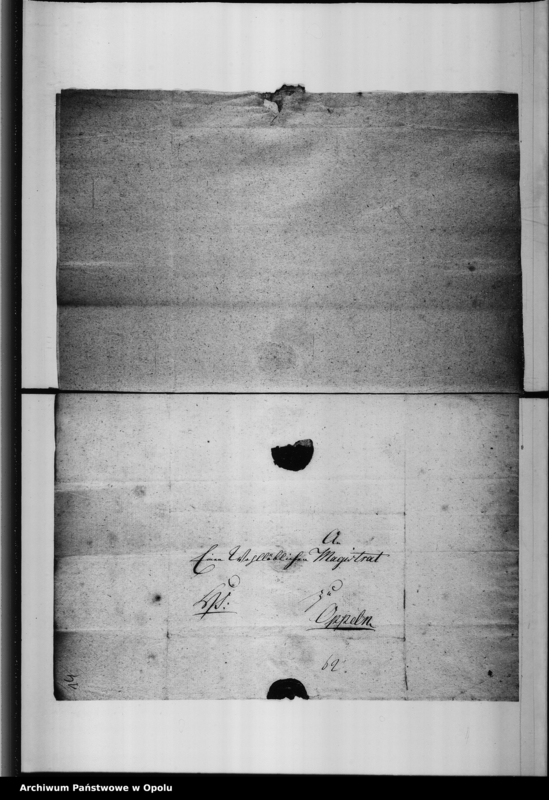 An
Einen Wohllöblichen Magistrat
zu
Oppeln
62.
14
Archiwum Państwowe w Opolu